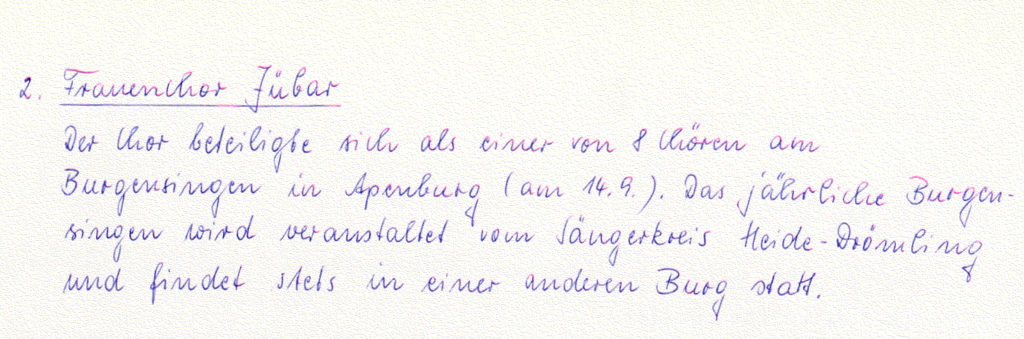 2. Frauenchor Jübar
Der Chor beteiligte sich als einer von 8 Chören am
Burgensingen in Apenburg (am 14.9.). Das jährliche Burgen-
singen wird veranstaltet vom Sängerkreis Heide-Drömling
und findet stets in einer anderen Burg statt.